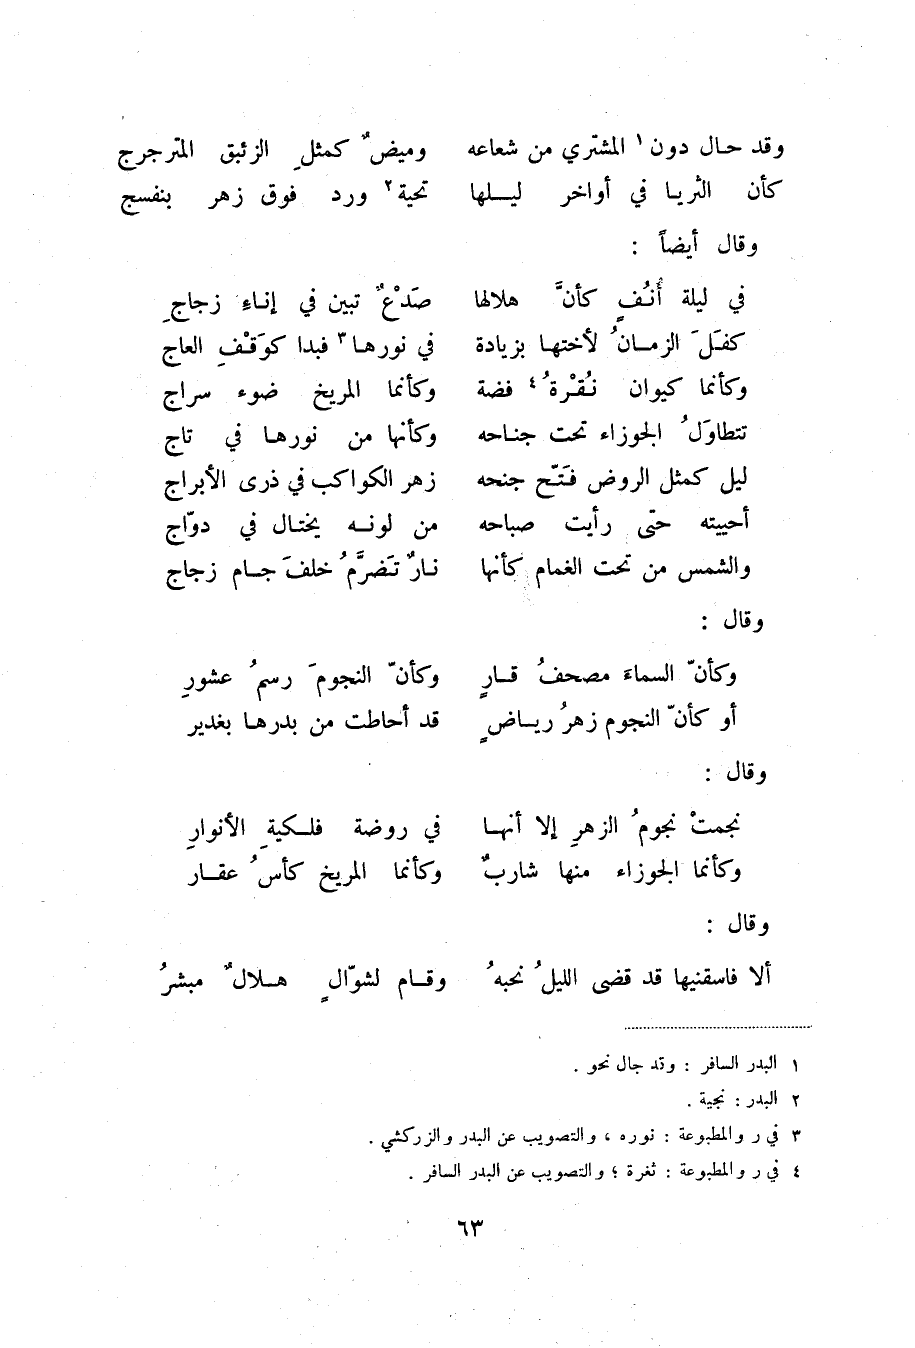 وقد حال دون١ المشتري من شعاعه وميضٌ كمثلِ الزئبق المترجرج
كأن الثريا في أواخر ليلها تحية٢ ورد فوق زهر بنفسج
وقال أيضاً :
في ليلة أُنُفٍ كأنَّ هلالها صَدْعٌ تبين في إناء زجاجِ
كفَلَ الزمانُ لأختها بزيادة في نورها٣ فبدا كوَقْفِ العاج
وكأنما كيوان نُقْرةُ٤ فضة وكأنما المريخ ضوء سراج
تتطاوَلُ الجوزاء تحت جناحه وكأنها من نورها في تاج
ليل كمثل الروض فَتّح جنحه زهر الكواكب في ذرى الأبراج
أحييته حتّى رأيت صباحه من لونه يختال في دوّاج
والشمس من تحت الغمام كأنها نارٌ تَضرَّمُ خلفَ جام زجاج
وقال :
وكأنّ السماءَ مصحفُ قارٍ وكأنّ النجومَ رسمُ عشورِ
أو كأنّ النجوم زهرُ رياضٍ قد أحاطت من بدرها بغدير
وقال :
نجمتْ نجومُ الزهرِ إلا أنها في روضة فلكيةِ الأنوارِ
وكأنما الجوزاء منها شاربٌ وكأنما المريخ كأسُ عقار
وقال :
ألا فاسقنيها قد قضى الليلُ نحبهُ وقام لشوّالٍ هلالٌ مبشرُ
١ البدر السافر : وقد جال نحو .
٢ البدر : نجية .
٣ في ر والمطبوعة : نوره ، والتصويب عن البدر والزركشي .
٤ في ر والمطبوعة : ثغرة ؛ والتصويب عن البدر السافر .
٦٣